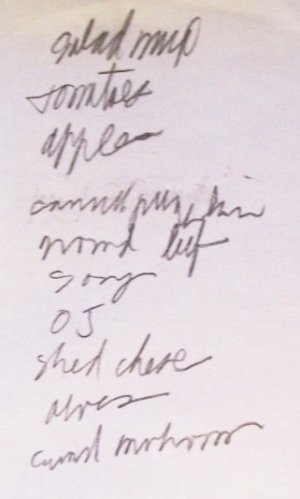 salad mix
tomatoes
apples
canned pumpkin
ground beef
soup
OJ
shed chese
olives
canned mushrooms